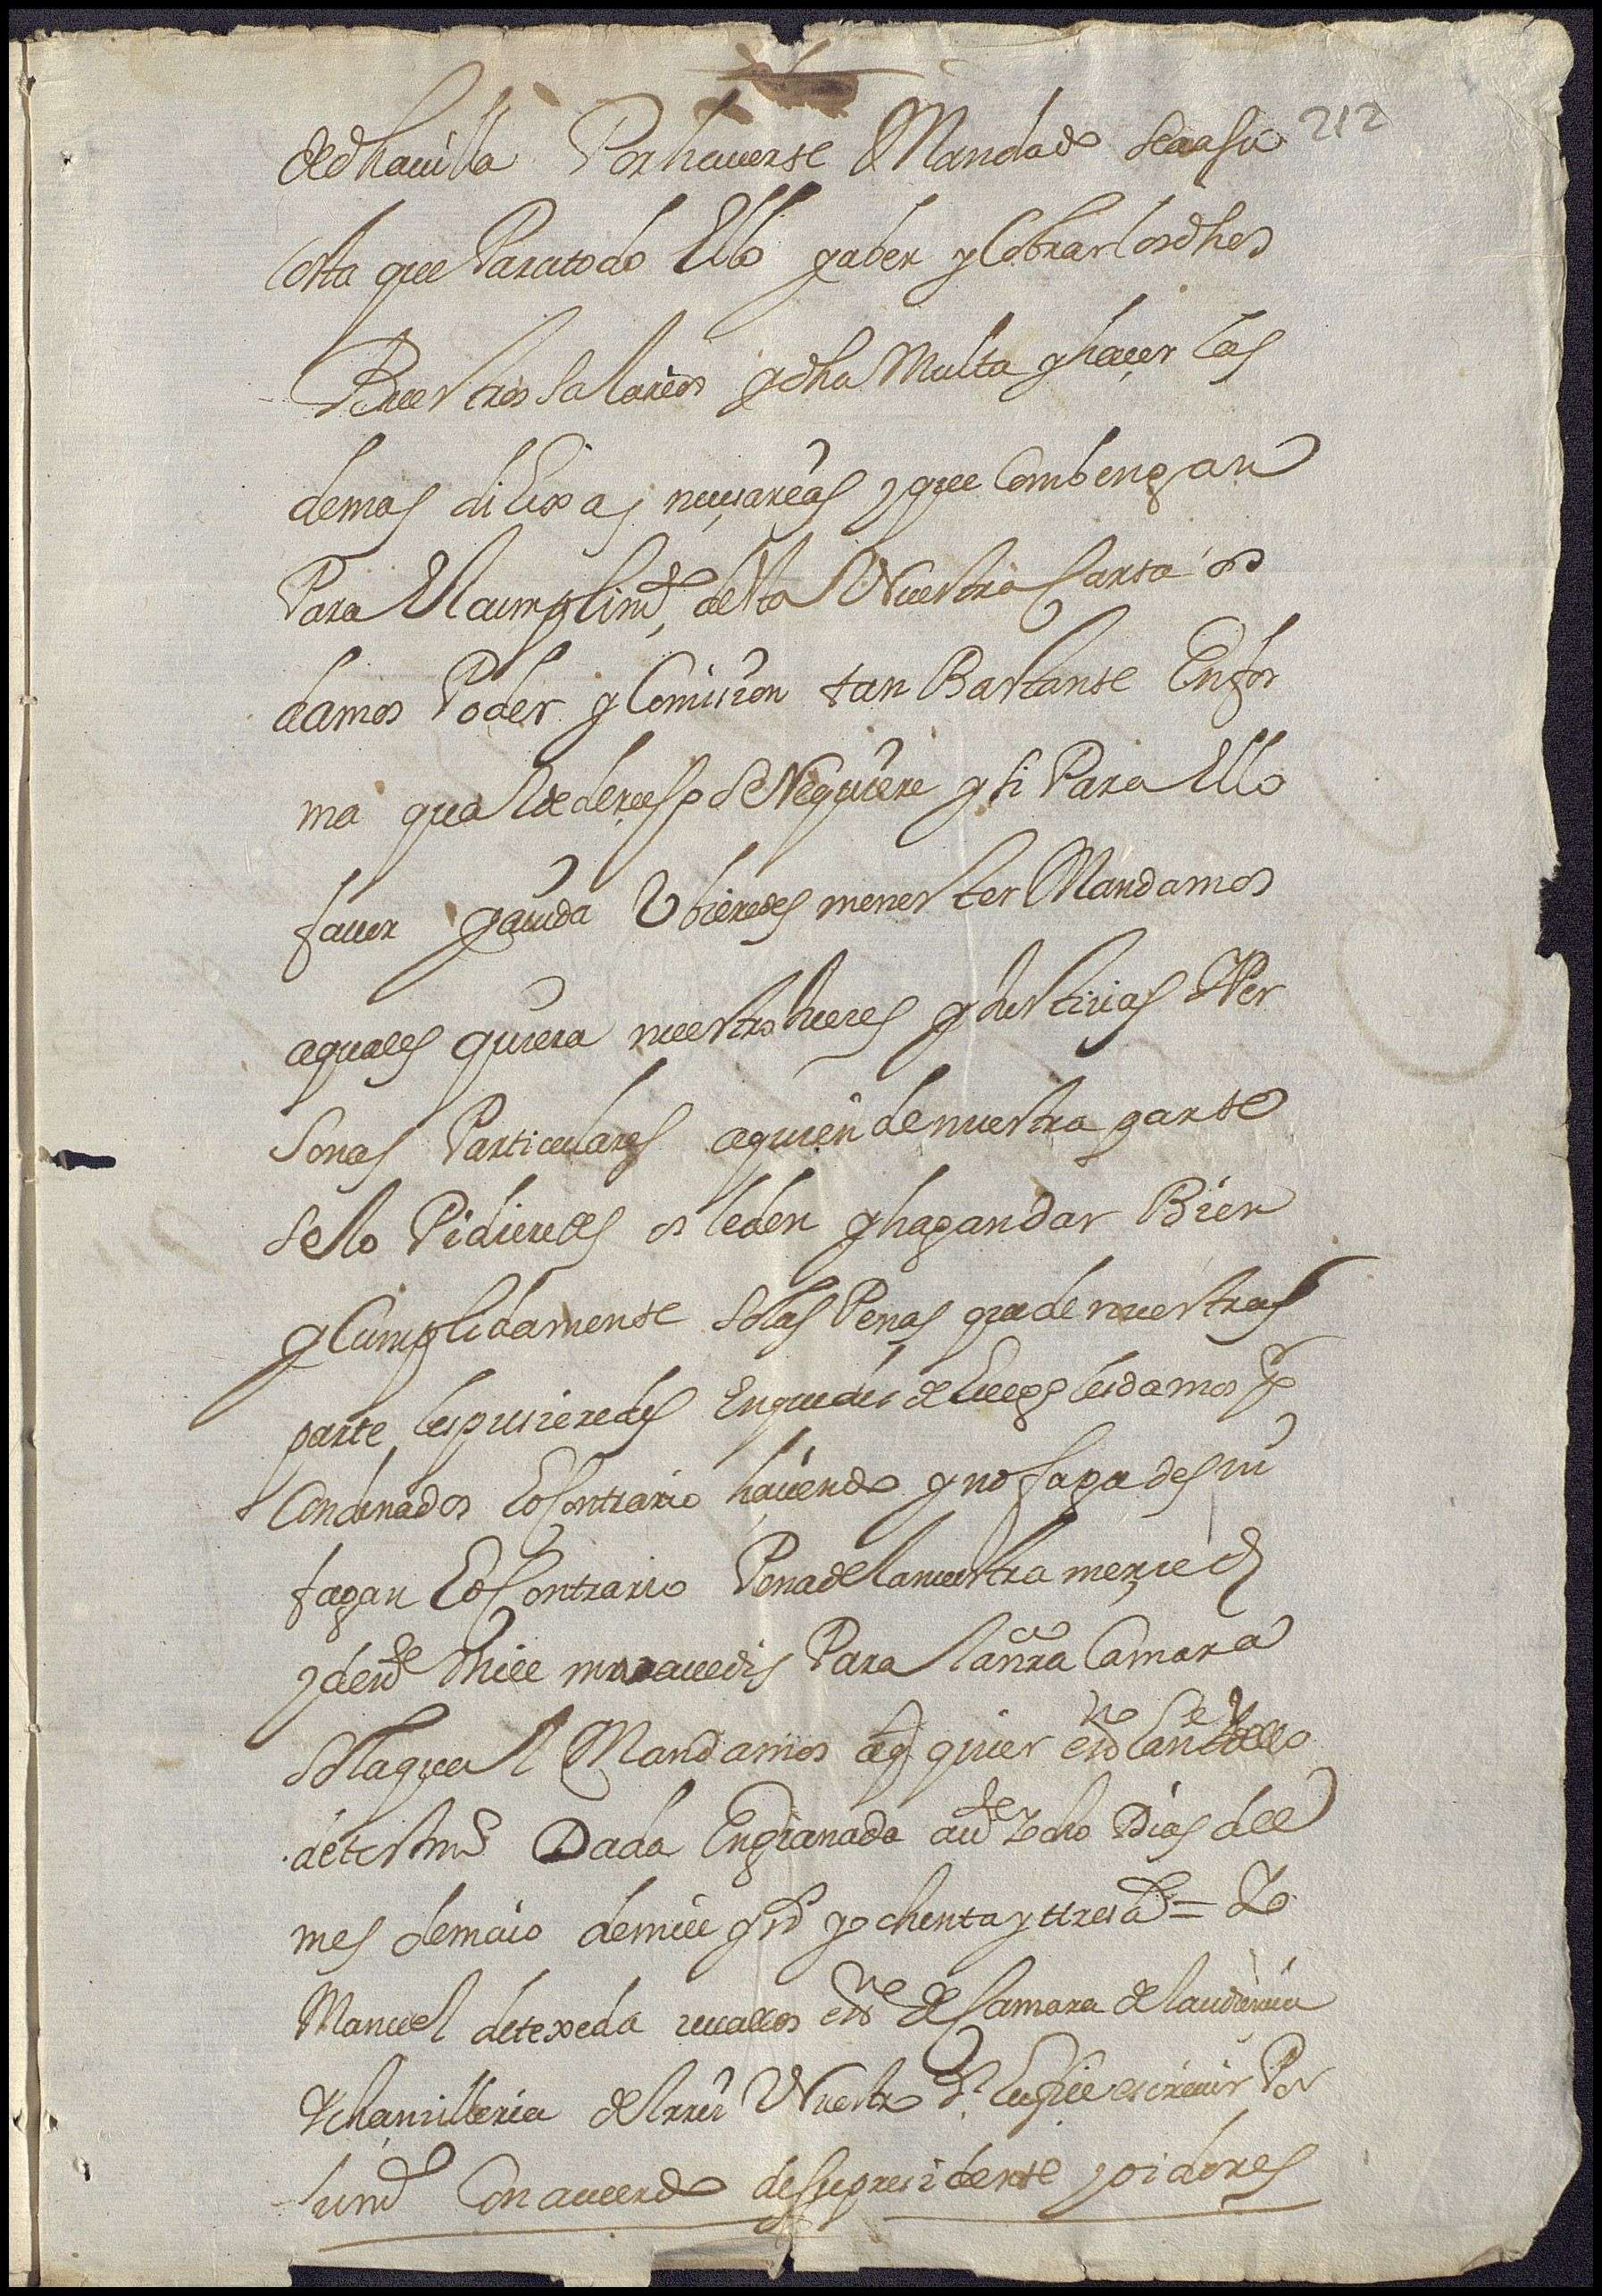 de dha villa Por haverse Mandado sea a su 212
Costa que Para todo Ello y aber y Cobrar los dhos
Vuestros Salarios y dha Multa y hacer las
demas dilixas neçesarias y que Combengan
Para El cumplimto desta Nuestra Carta os
damos Poder y Comision tan Bastante En for
ma qual de derecho se Requiere y si Para Ello
favor y aiuda Ubieredes menester Mandamos
a quales quiera nuestros Jueces y Justicias Per
sonas Particulares a quien de nuestra parte
se lo Pidieredes os le den y hagan dar Bien
y Cumplidamente so las Penas que de nuestras
parte les pusieredes En que des de luego les damos Por
Condenados lo Contrario haciendo y no fagades ni
fagan lo Contrario Pena de la nuestra merçed
y de Mill maravedis Para la nra Camara
so la qual Mandamos a qualquier esno la
de testimo Dada En granada a Ocho Dias del
mes de maio de mill y ochenta y tres as = Yo
Manuel de texeda esno de Camara de la audiencia
y chançilleria del Rei Nuestro sr la fice escrivir Por
su mdo Con acuerdo de su presidente y oidores